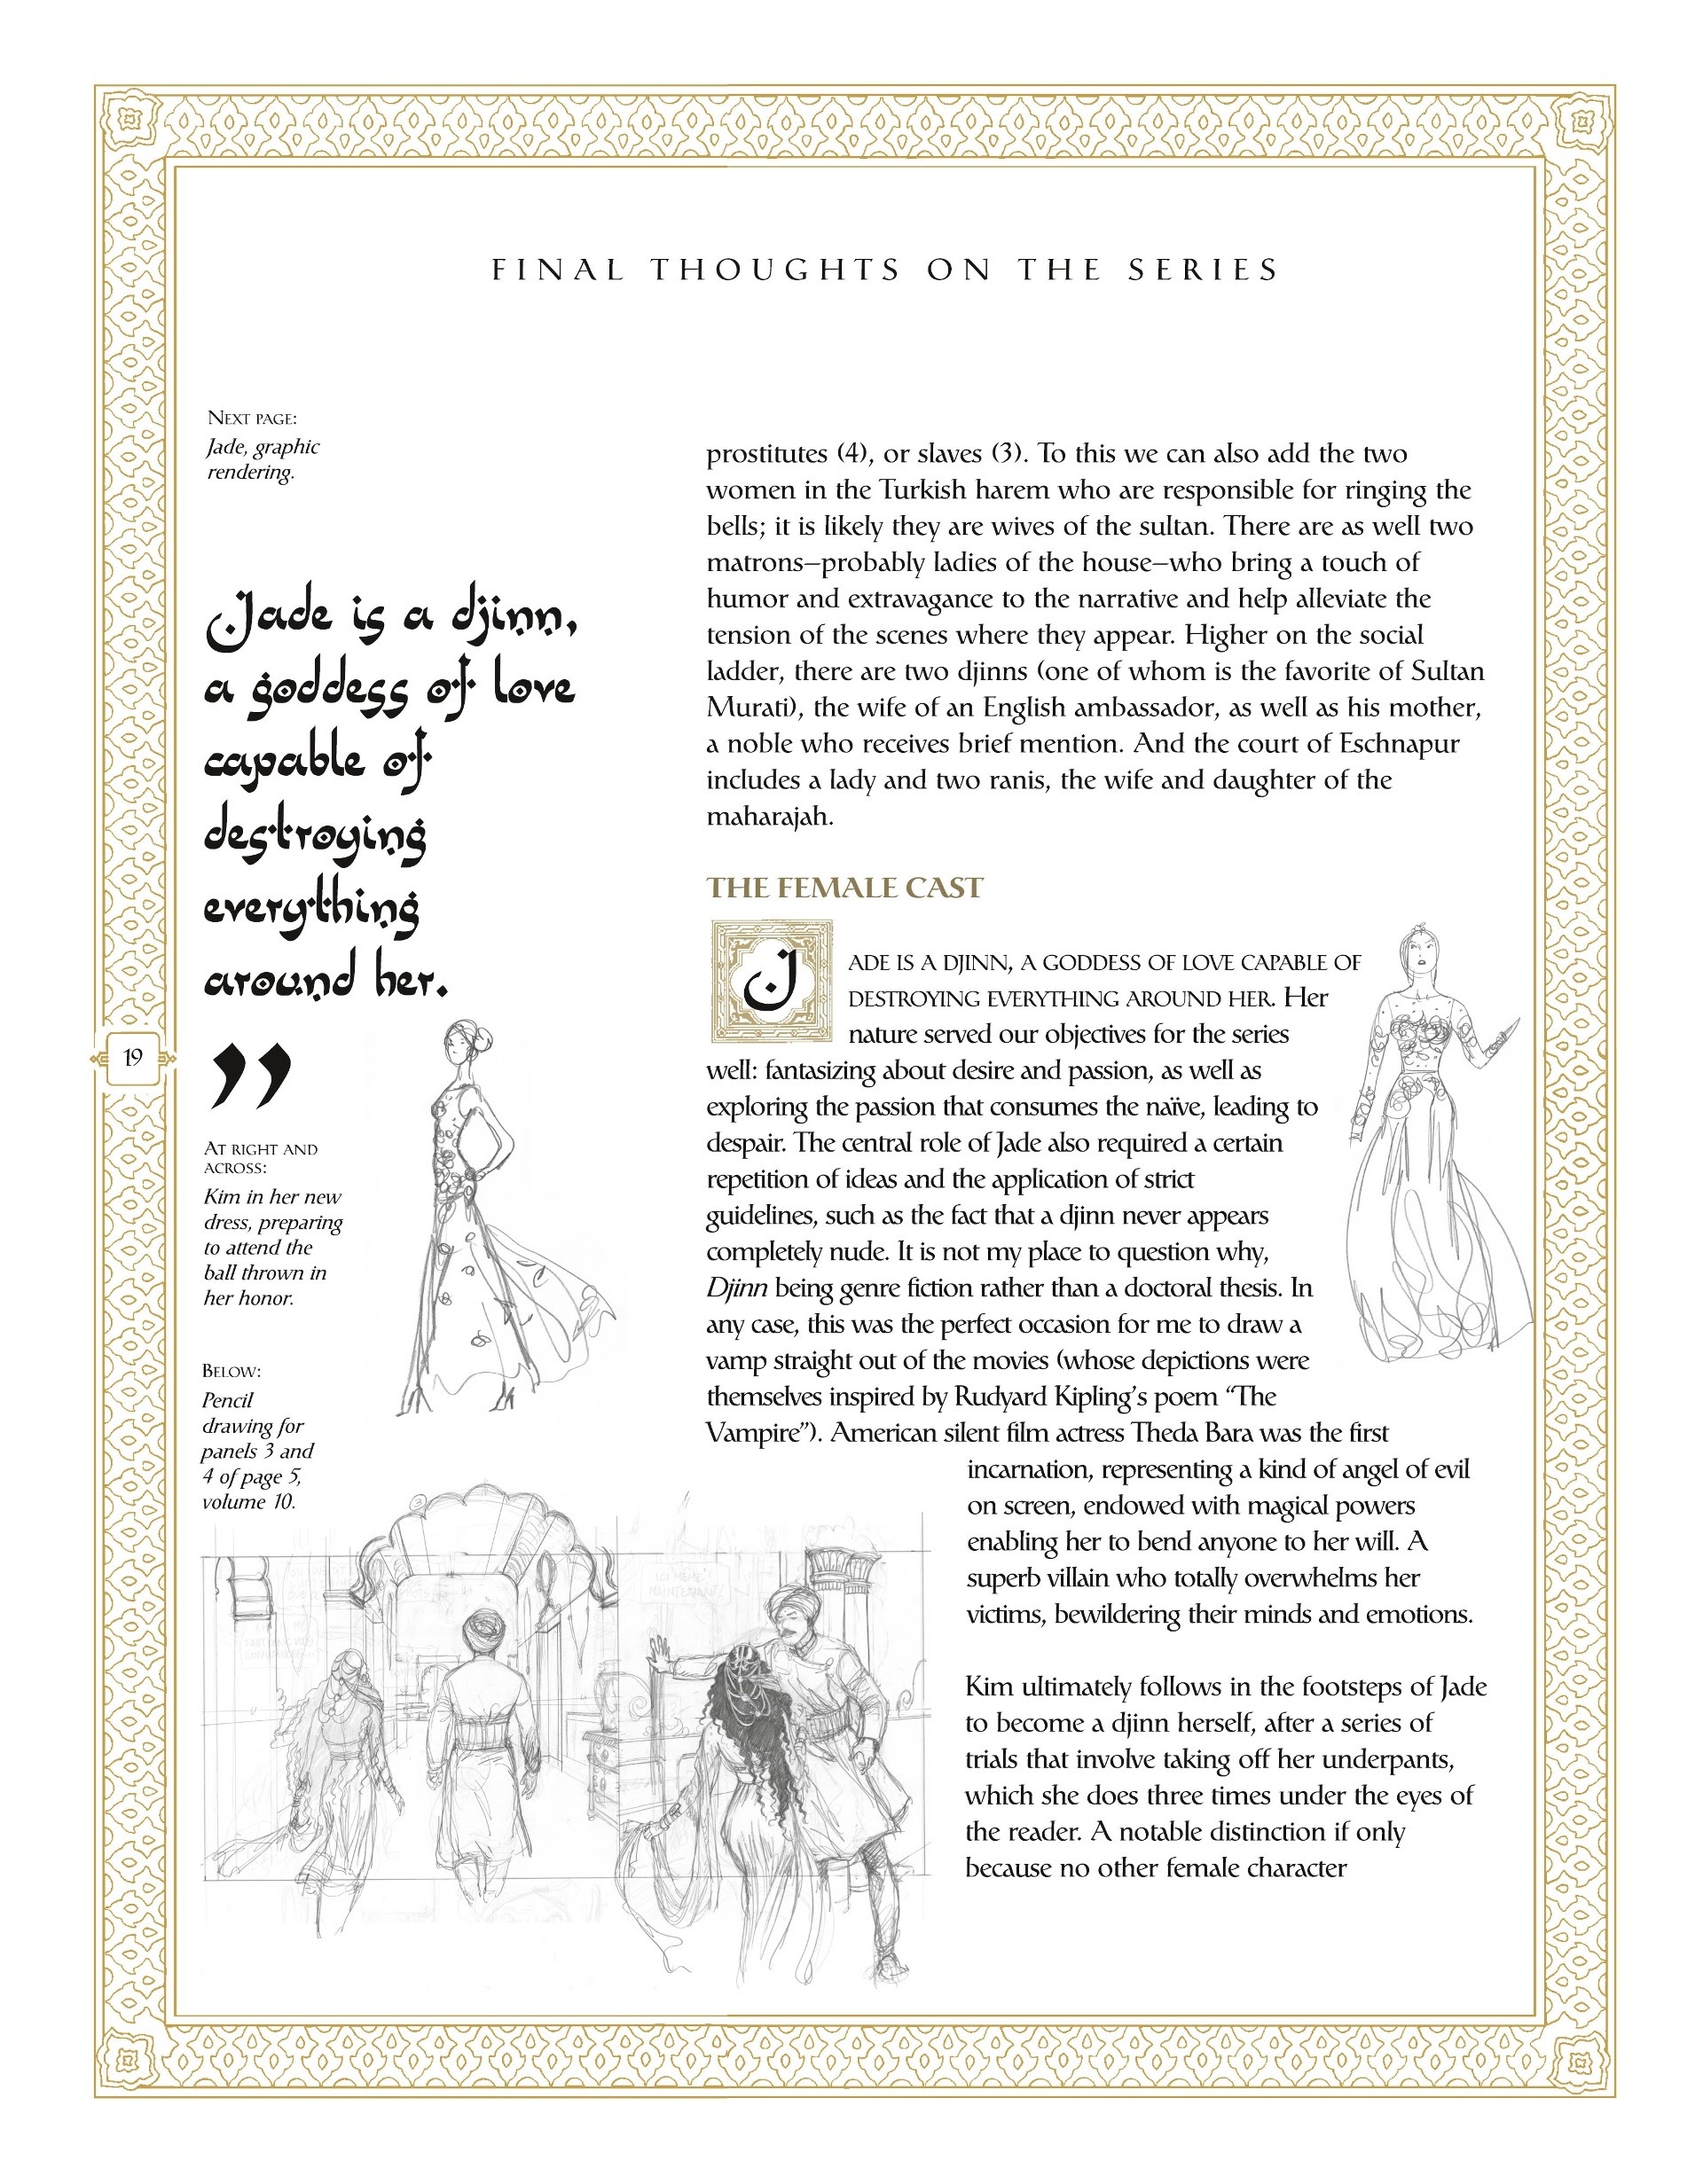 FINAL THOUGHTS ON THE SERIES
NEXT PAGE:
Jade, graphic
rendering.
Jade is a djinn,
a goddess of love
capable of
destroying
everything
around her.
”
19
AT RIGHT AND
ACROSS:
Kim in her new
dress, preparing
to attend the
ball thrown in
her honor.
BELOW:
Pencil
drawing for
panels 3 and
4 of page 5,
volume 10.
prostitutes (4), or slaves (3). To this we can also add the two
women in the Turkish harem who are responsible for ringing the
bells; it is likely they are wives of the sultan. There are as well two
matrons—probably ladies of the house—who bring a touch of
humor and extravagance to the narrative and help alleviate the
tension of the scenes where they appear. Higher on the social
ladder, there are two djinns (one of whom is the favorite of Sultan
Murati), the wife of an English ambassador, as well as his mother,
a noble who receives brief mention. And the court of Eschnapur
includes a lady and two ranis, the wife and daughter of the
maharajah.
THE FEMALE CAST
JADE IS A DJINN, A GODDESS OF LOVE CAPABLE OF
DESTROYING EVERYTHING AROUND HER. Her
nature served our objectives for the series
well: fantasizing about desire and passion, as well as
exploring the passion that consumes the naïve, leading to
despair. The central role of Jade also required a certain
repetition of ideas and the application of strict
guidelines, such as the fact that a djinn never appears
completely nude. It is not my place to question why,
Djinn being genre fiction rather than a doctoral thesis. In
any case, this was the perfect occasion for me to draw a
vamp straight out of the movies (whose depictions were
themselves inspired by Rudyard Kipling’s poem “The
Vampire”). American silent film actress Theda Bara was the first
incarnation, representing a kind of angel of evil
on screen, endowed with magical powers
enabling her to bend anyone to her will. A
superb villain who totally overwhelms her
victims, bewildering their minds and emotions.
Kim ultimately follows in the footsteps of Jade
to become a djinn herself, after a series of
trials that involve taking off her underpants,
which she does three times under the eyes of
the reader. A notable distinction if only
because no other female character